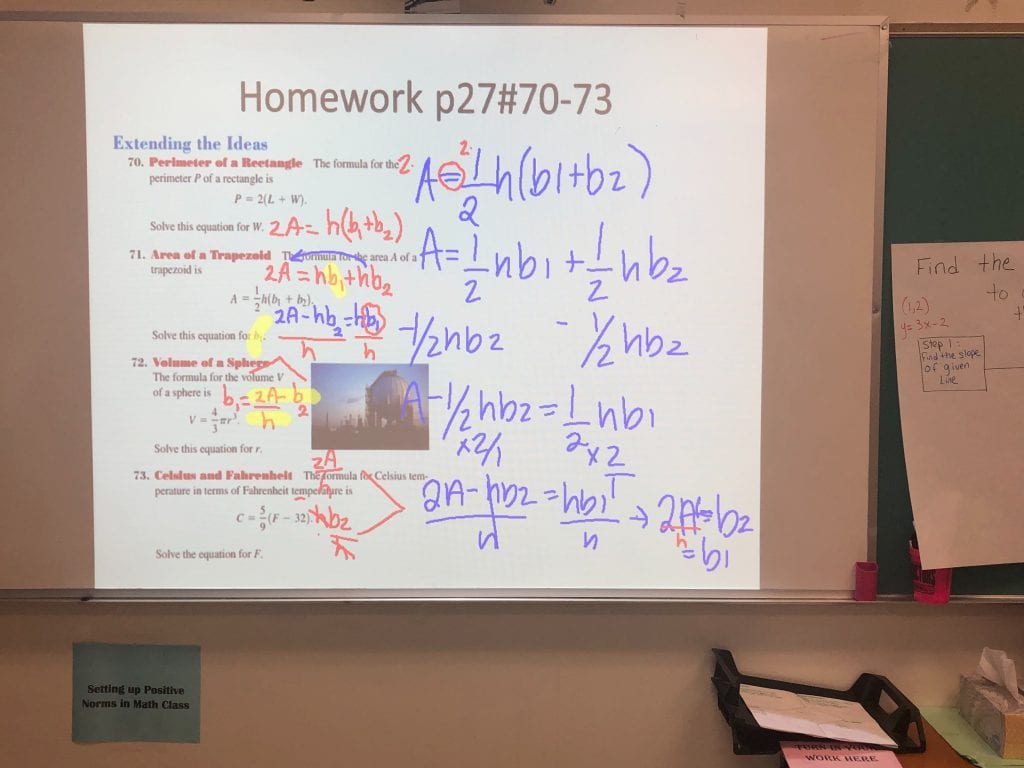 Homework p27#70-73
Extending the Ideas
70. Perimeter of a Rectangle The formula for the
perimeter P of a rectangle is
P = 2(L + W).
Solve this equation for W.
71. Area of a Trapezoid The formula for the area A of a
trapezoid is
A = 1/2 h(b1 + b2).
Solve this equation for b1.
72. Volume of a Sphere
The formula for the volume V
of a sphere is
V = 4/3 πr³.
Solve this equation for r.
73. Celsius and Fahrenheit The formula for Celsius tem-
perature in terms of Fahrenheit temperature is
C = 5/9 (F − 32).
Solve the equation for F.
2· A = 2· 1/2 h(b1+b2)
2A = h(b1+b2)
2A = hb1+hb2
2A-hb2 = hb1
h h
b1 = 2A - b2
h
2A
h
- hb2
h
A = 1/2 hb1 + 1/2 hb2
-1/2hb2 - 1/2 hb2
A-1/2hb2 = 1/2 hb1
×2/1 ×2/1
2A-hb2 = hb1 → 2A - b2
h h h
= b1
Find the
to
(1,2)
y= 3x-2
Step 1:
Find the slope
of given
Line
Setting up Positive
Norms in Math Class
TURN IN YOUR
WORK HERE